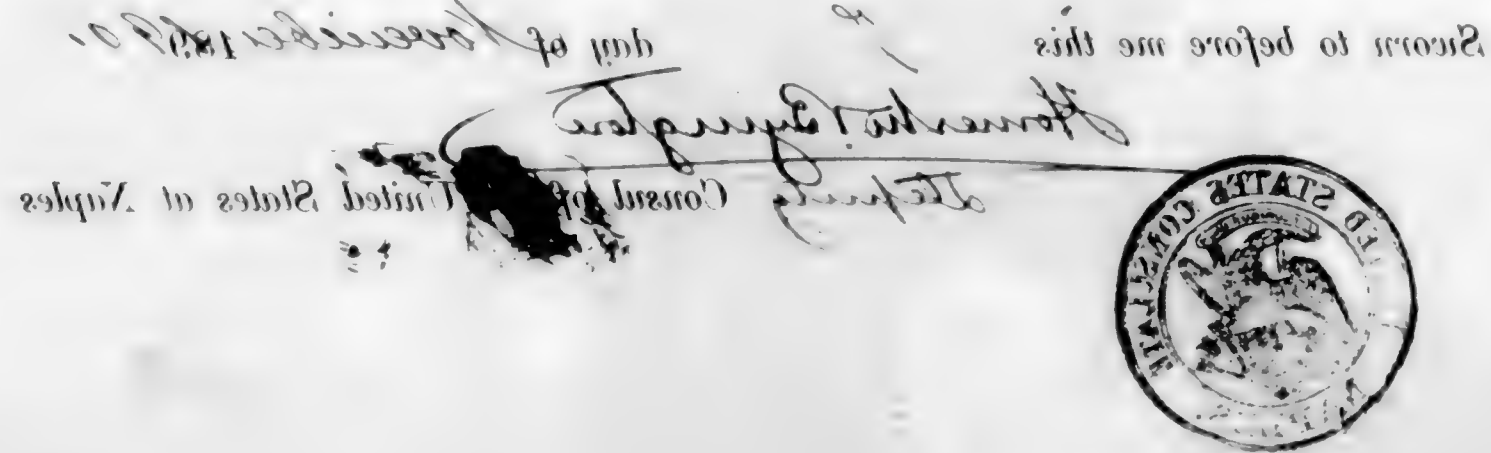 Sworn to before me this day of November 1890.
Homer M. Byington
Deputy Consul of United States at Naples
UNITED STATES CONSULATE
NAPLES